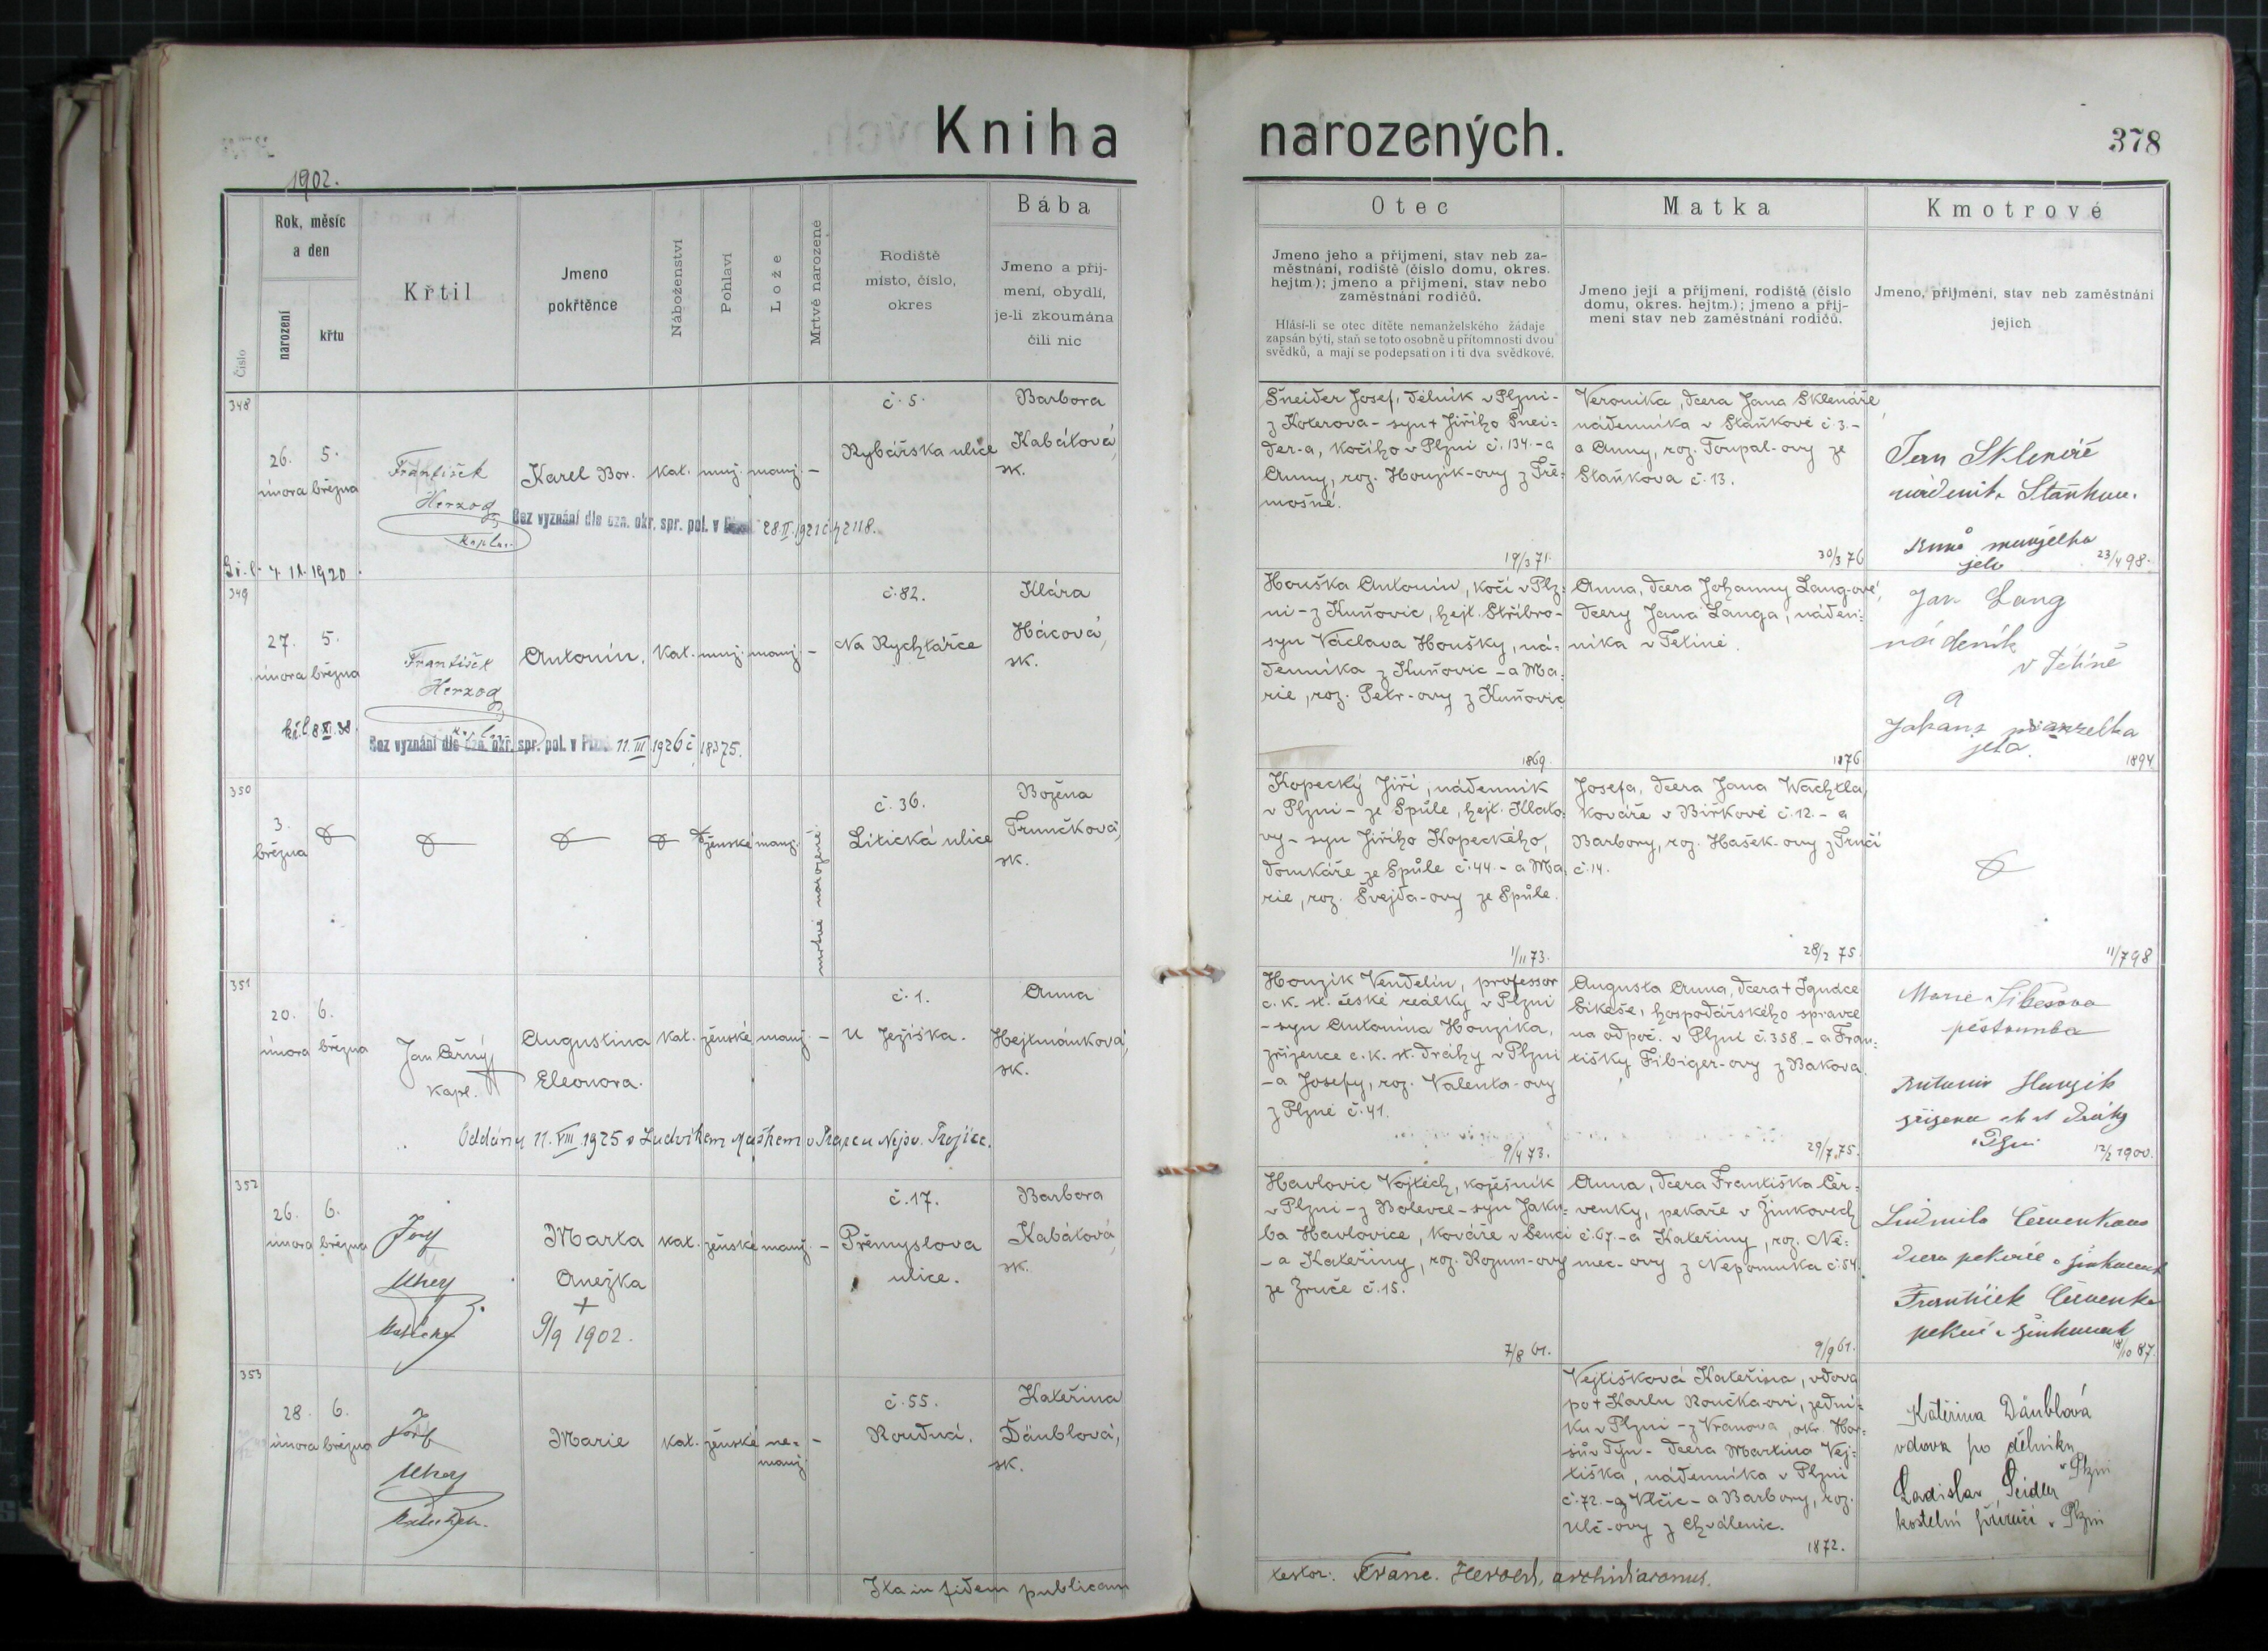 Kniha
narozených.
378
1902.
Číslo
Rok, měsíc
a den
narození
křtu
Křtil
Jmeno
pokřtěnce
Náboženství
Pohlaví
Lože
Mrtvě narozené
Rodiště
místo, číslo,
okres
Bába
Jmeno a přij-
mení, obydlí,
je-li zkoumána
čili nic
Otec
Jmeno jeho a přijmeni, stav neb za-
městnání, rodiště (číslo domu, okres.
hejtm.); jmeno a přijmeni, stav nebo
zaměstnání rodičů.
Hlásí-li se otec dítěte nemanželského žádaje
zapsán býti, staň se toto osobně u přítomnosti dvou
svědků, a mají se podepsati on i ti dva svědkové.
Matka
Jmeno její a přijmeni, rodiště (číslo
domu, okres. hejtm.); jmeno a přij-
meni stav neb zaměstnání rodičů.
Kmotrové
Jmeno, přijmeni, stav neb zaměstnání
jejich
348
26.
února
5.
března
František
Herzog
kaplan
Karel Bor.
kat.
muž.
manž.
–
č. 5.
Rybářská ulice
Barbora
Kabátová,
sk.
Bez vyznání dle ozn. okr. spr. pol. v 28.II.1921 č. 42118.
4. 11. 1920.
Šneider Josef, dělník v Plzni-
z Koterova - syn † Jiřího Šnei-
der-a, kočího v Plzni č. 134. - a
Anny, roz. Houzik-ovy z Tře-
mošné.
19/3 71.
Veronika, dcera Jana Sklenáře,
nádenníka v Staňkově č. 3. -
a Anny, roz. Toupal-ovy ze
Staňkova č. 13.
30/3 76
Jan Sklenář
nádeník Staňkov.
manželka
jeho
23/4 98.
349
27.
února
5.
března
František
Herzog
Antonín.
kat.
muž.
manž.
–
č. 82.
Na Rychtářce
Klára
Hácová,
sk.
8.XI.38.
Bez vyznání dle ozn. okr. spr. pol. v Plzni 11.III.1926 č. 18375.
Houška Antonín, kočí v Plz-
ni - z Kuňovic, hejt. Stříbro -
syn Václava Houšky, ná-
denníka z Kuňovic - a Ma-
rie, roz. Petr-ovy z Kuňovic
1869.
Anna, dcera Johanny Lang-ové,
dcery Jana Langa, náden-
níka v Tetíně.
1876
Jan Lang
nádeník
v Tetíně
a
jeho
1894
350
3.
března
ženské
manž.
mrtvě narozené
č. 36.
Litická ulice
Božena
Trunčková,
sk.
Kopecký Jiří, nádenník
v Plzni - ze Spůle, hejt. Klato-
vy - syn Jiřího Kopeckého,
domkáře ze Spůle č. 44. - a Ma-
rie, roz. Švejda-ovy ze Spůle.
1/11 73.
Josefa, dcera Jana Wachtla,
kováře v Biřkově č. 12. - a
Barbory, roz. Hašek-ovy z Trnčí
č. 14.
28/2 75
11/7 98
351
20.
února
6.
března
Jan Černý
kapl.
Augustina
Eleonora.
kat.
ženské
manž.
–
č. 1.
U Ježíška.
Anna
Hejtmánková,
sk.
Oddána 11. VIII. 1925 s Ludvíkem Maškem v Praze u Nejsv. Trojice.
Houzik Vendelin, professor
c. k. st. české reálky v Plzni
- syn Antonína Houzika,
zřízence c. k. st. dráhy v Plzni
- a Josefy, roz. Valenta-ovy
z Plzně č. 41.
9/4 73.
Augusta Anna, dcera † Ignáce
Sikeše, hospodářského správce
na odpoč. v Plzni č. 358. - a Fran-
tišky Fibiger-ovy z Bakova.
29/7 75.
Marie
pěstounka
Antonín Houzik
zřízenec st. dráhy
v Plzni
12/2 1900.
352
26.
února
6.
března
Marta
Anežka
†
9/9 1902.
kat.
ženské
manž.
–
č. 17.
Přemyslova
ulice.
Barbora
Kabátová,
sk.
Havlovic Vojtěch, kožešník
v Plzni - z Bolevce - syn Jaku-
ba Havlovice, kováře v Senci
- a Kateřiny, roz. Rozum-ovy
ze Zruče č. 15.
7/8 61.
Anna, dcera Františka Čer-
venky, pekaře v Žinkovech
č. 67. - a Kateřiny, roz. Ně-
mec-ovy z Nepomuka č. 54.
9/9 61.
Ludmila Červenkova
dcera pekaře v Žinkovech
František Červenka
pekař v Žinkovech
18/10 87.
353
28.
února
6.
března
Marie
kat.
ženské
ne-
manž.
–
č. 55.
Roudná.
Kateřina
Däublová,
sk.
Vejtišková Kateřina, vdova
po † Karlu Roučka-ovi, zední-
ku v Plzni - z Vranova, okr. Hor-
šův Týn - dcera Martina Vej-
tiška, nádenníka v Plzni
č. 72. - z Vlčic - a Barbory, roz.
Ulč-ovy z Chválenic.
1872.
Kateřina Däublová
vdova po dělníku
v Plzni
Ladislav Seidler
kostelní v Plzni
Ita in fidem publicam
testor: Franc. Herold, archidiaconus.